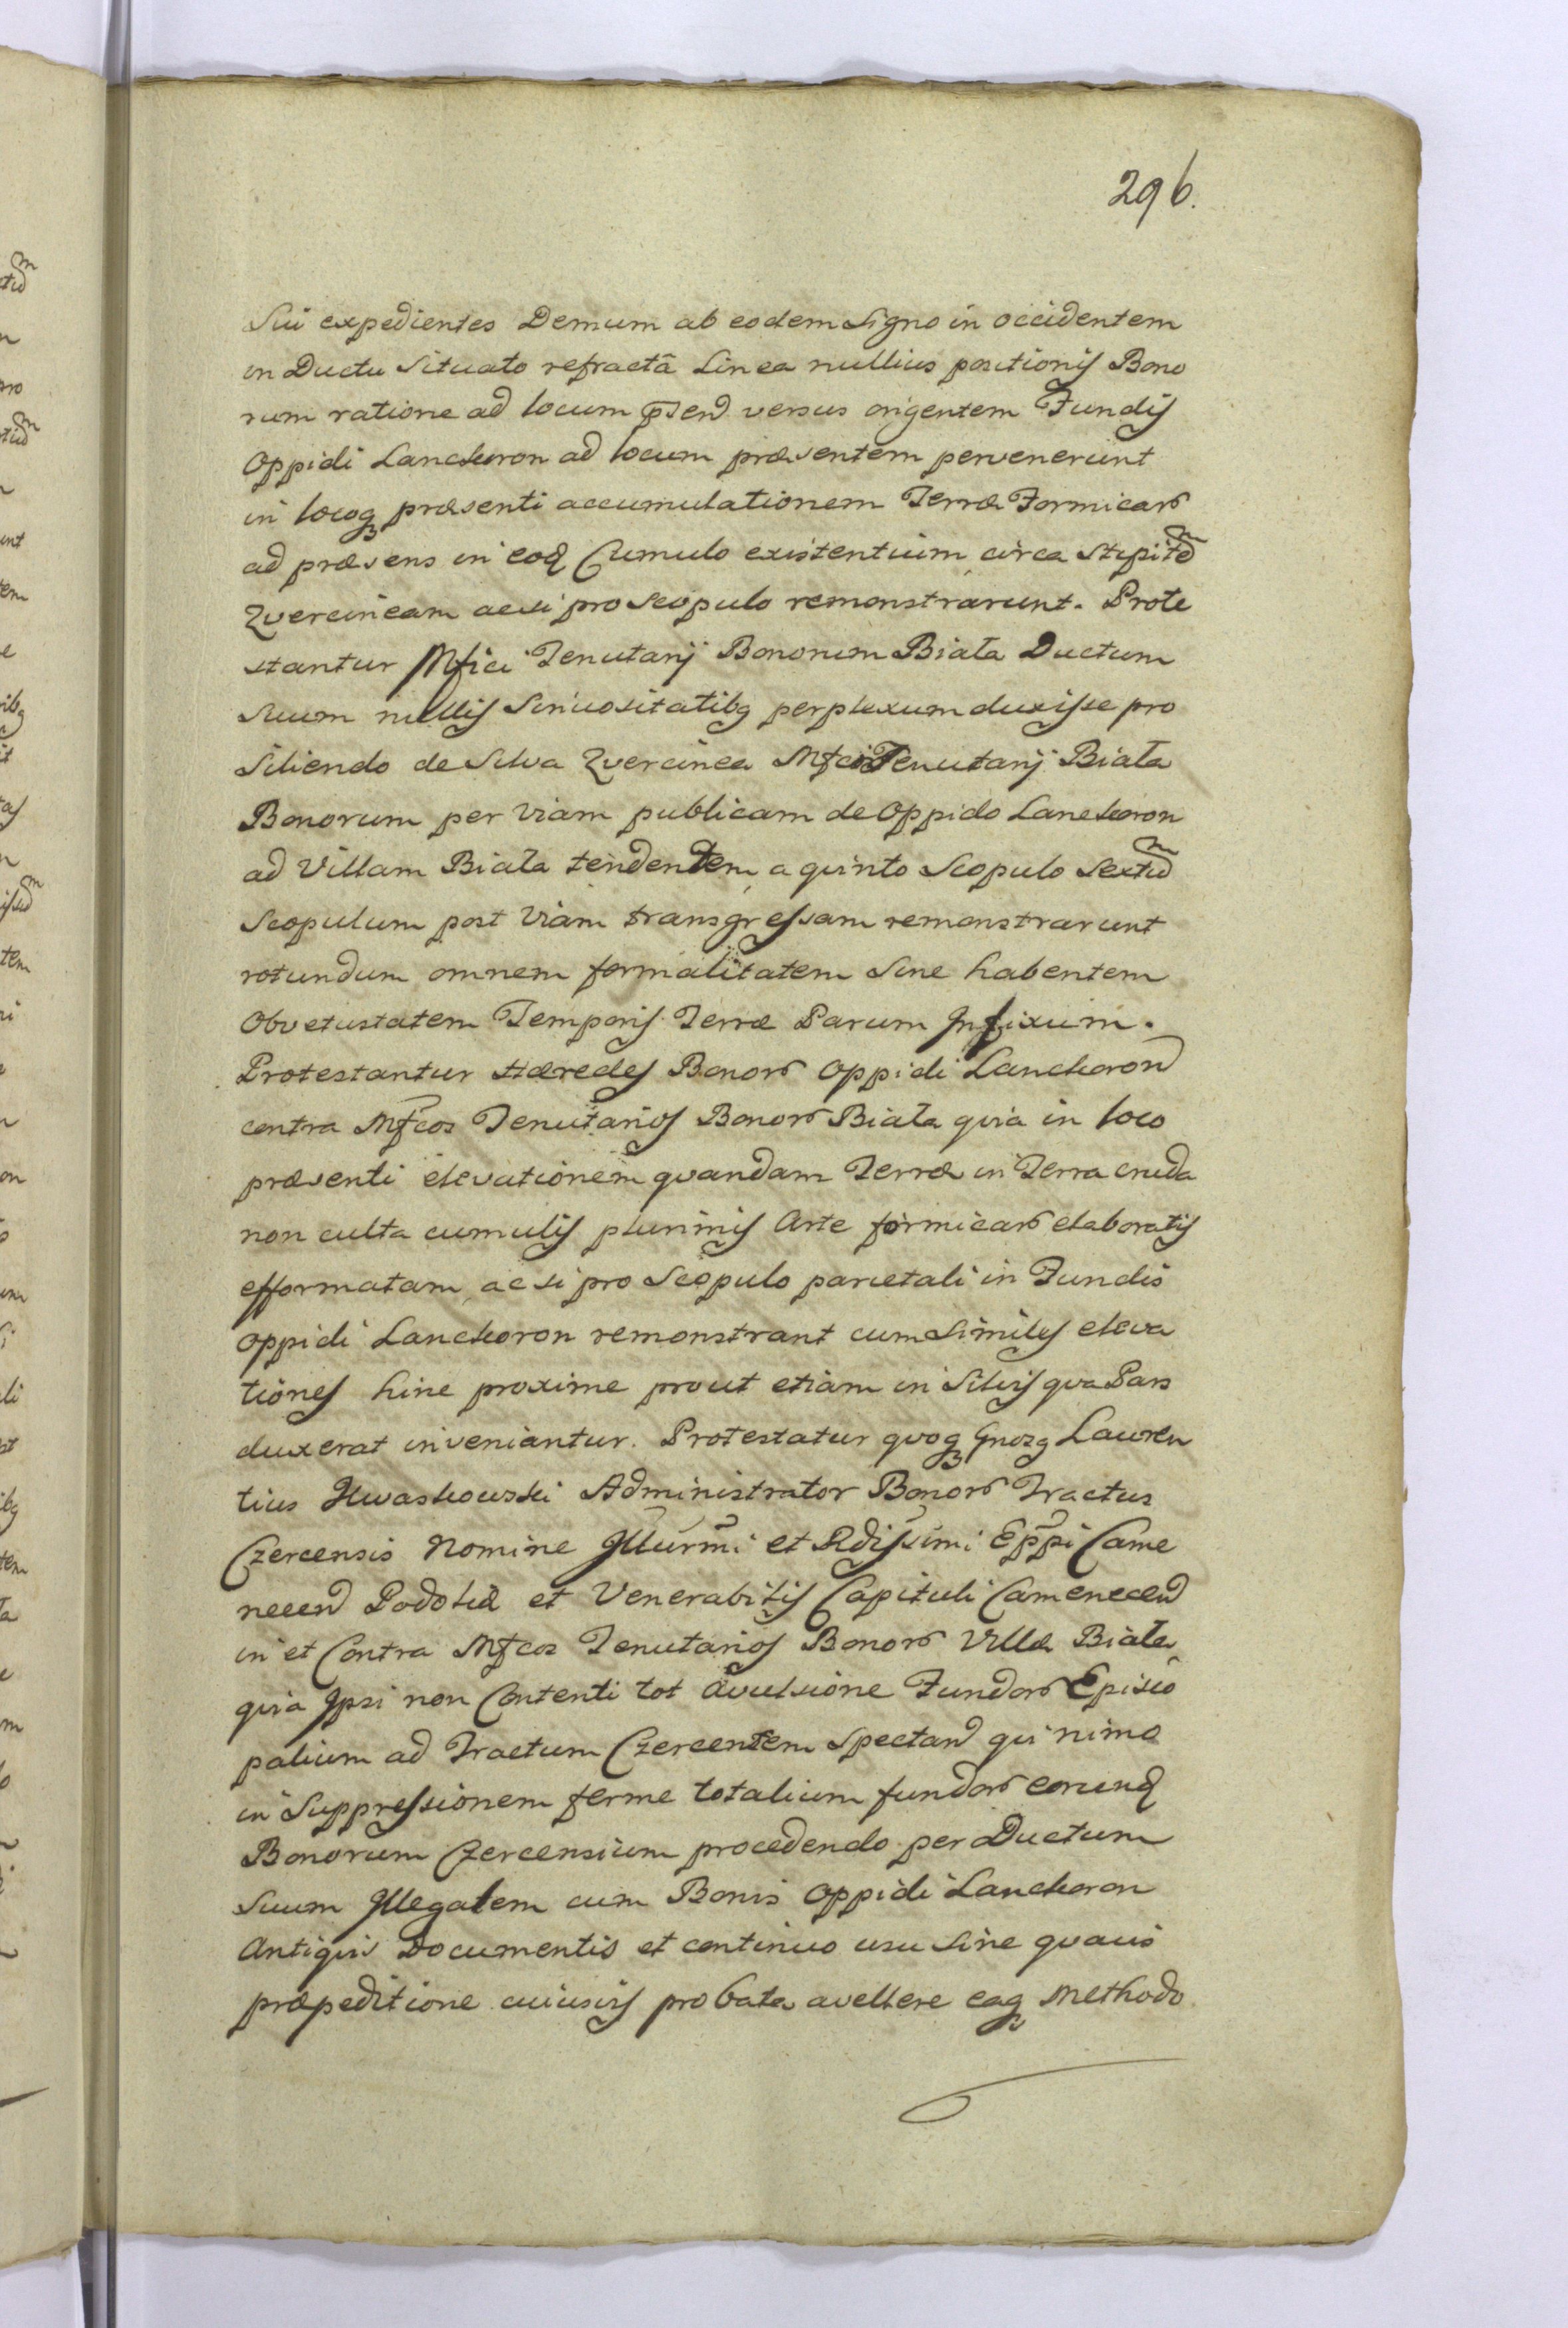 296.
Sui expedientes Demum ab eodem Signo in occidentem
in Ductu Situato refractâ Linea nullius positionis Bono
rum ratione ad locum p̄sen versus origentem Fundis
Oppidi Lanckoron ad locum præsentem pervenerunt
in locoq præsenti accumulationem Terræ Formicar
ad præsens in eoq Cumulo existentium circa stipitem
Quercineam acsi pro Scopulo remonstrarunt. Prote
stantur Mfici Tenutarij Bonorum Biała Ductum
suum nullis Sinuositatibq perplexum duxisse pro
Siliendo de Silva Quercinea Mfci Tenutarij Biała
Bonorum per viam publicam de Oppido Lanckoron
ad Villam Biała tendentem a quinto Scopulo Sextum
Scopulum post viam transgressam remonstrarunt
rotundum omnem formalitatem Sine habentem
Obvetustatem Temporis Terræ Parum Infixum.
Protestantur Hæredes Bonor Oppidi Lanckoron
contra Mfcos Tenutarios Bonor Biała quia in loco
præsenti elevationem quandam Terræ in Terra cruda
non culta cumulis plurimis Arte formicar elaboratis
efformatam, ac si pro Scopulo parietali in Fundis
oppidi Lanckoron remonstrant cum Similes eleva
tiones hinc proxime prout etiam in Silvis qua Pars
duxerat inveniantur. Protestatur quoq Gnosq Lauren
tius Kwaskowski Administrator Bonor Tractus
Czercensis Nomine Illurmi et Rdissimi Eppi Came
necen Podoliæ et Venerabilis Capituli Camenecen
in et Contra Mfcos Tenutarios Bonor Villæ Biała
quia Ipsi non Contenti tot avulsione Fundor Episco
palium ad Tractum Czercensem Spectan qui nimo
in Suppressionem ferme totalium fundor eorunq
Bonorum Czercensium procedendo per Ductum
Suum Illegalem cum Bonis Oppidi Lanckoron
Antiquis Documentis et continuo usu Sine quavis
præpeditione cuiusvis probata avellere eaq Methodo